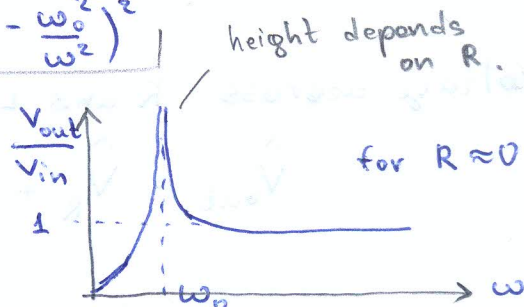 - ω₀² / ω² )²
height depends
on R.
Vout / Vin
for R ≈ 0
1
ω₀
ω